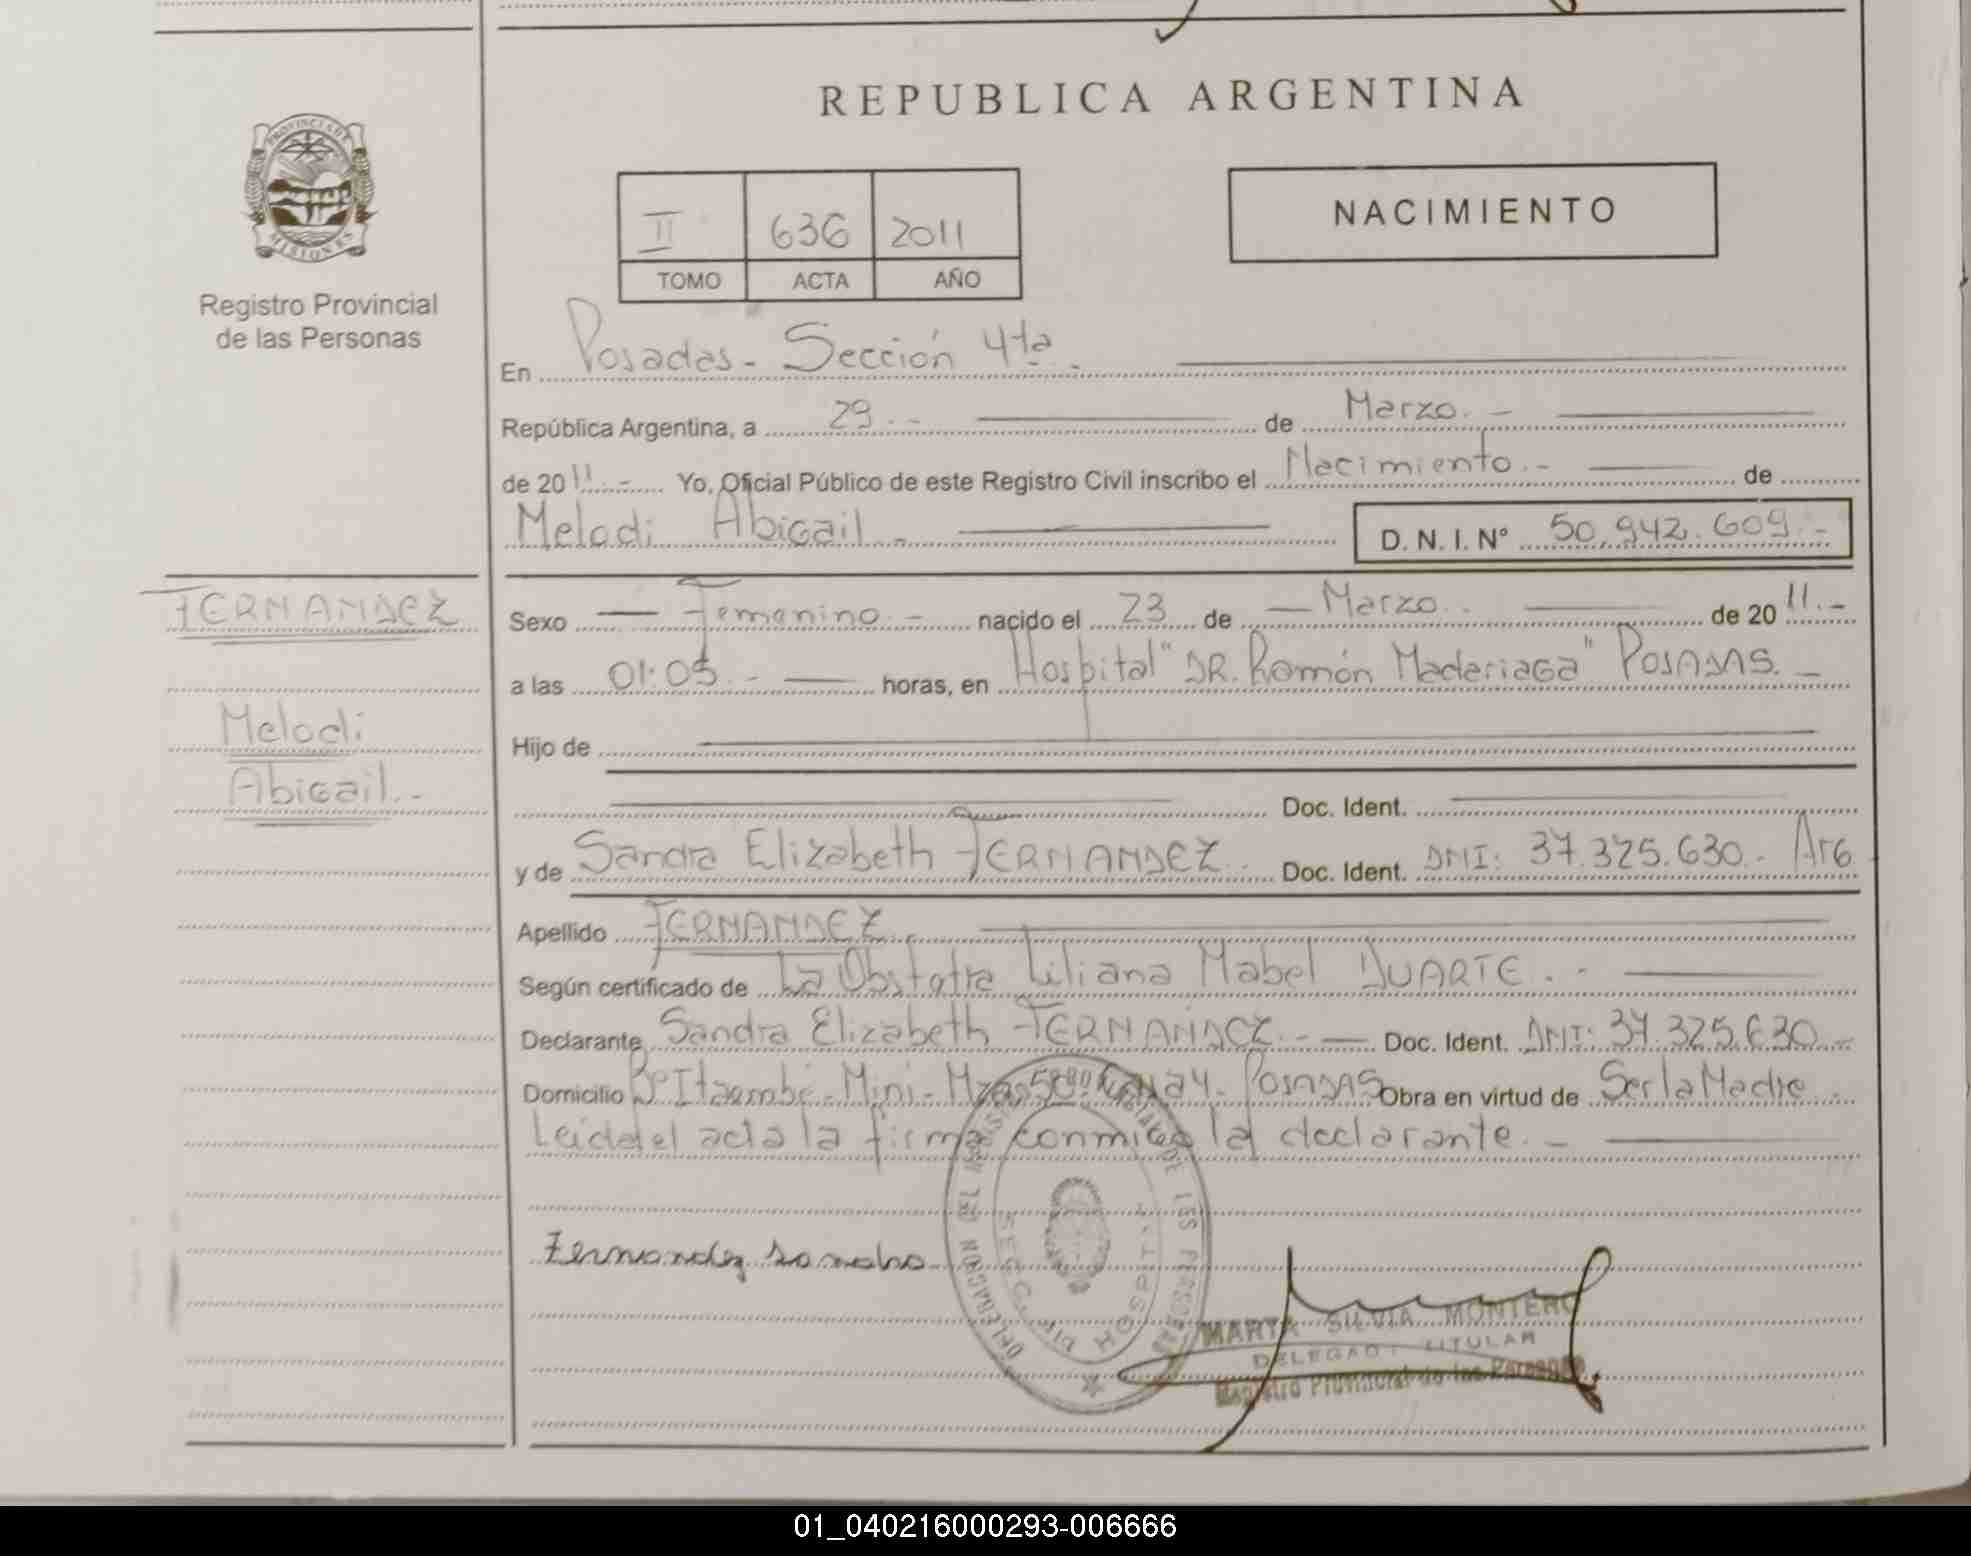 REPUBLICA ARGENTINA
PROVINCIA DE
MISIONES
Registro Provincial
de las Personas
II 636 2011
TOMO ACTA AÑO
NACIMIENTO
En Posadas - Sección 4ta.
República Argentina, a 29.- de Marzo.-
de 2011.- Yo, Oficial Público de este Registro Civil inscribo el Nacimiento.- de
Melodi Abigail.- D. N. I. N° 50.942.609.-
FERNANDEZ
Melodi
Abigail.-
Sexo Femenino.- nacido el 23 de Marzo.. de 2011.-
a las 01:05.- horas, en Hospital "DR. Ramón Madariaga" POSADAS.-
Hijo de
Doc. Ident.
y de Sandra Elizabeth FERNANDEZ.- Doc. Ident. DNI: 37.325.630.- Arg
Apellido FERNANDEZ.
Según certificado de La Obstatra Liliana Mabel DUARTE.-
Declarante Sandra Elizabeth FERNANDEZ.- Doc. Ident. DNI: 37.325.630.-
Domicilio Bº Itaembé - Mini - POSADAS Obra en virtud de Ser la Madre.
Leida el acta la firma conmigo la declarante.-
Fernandez Sandra
DELEGACION DEL REGISTRO DE LAS PERSONAS
HOSPITAL
MARTA SILVIA MONTERO
DELEGADA TITULAR
Registro Provincial de las Personas
01_040216000293-006666